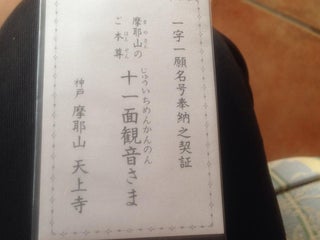 一字一願名号奉納之契証
摩耶山のご本尊
まやさん
ほんぞん
十一面観音さま
じゅういちめんかんのん
神戸 摩耶山 天上寺